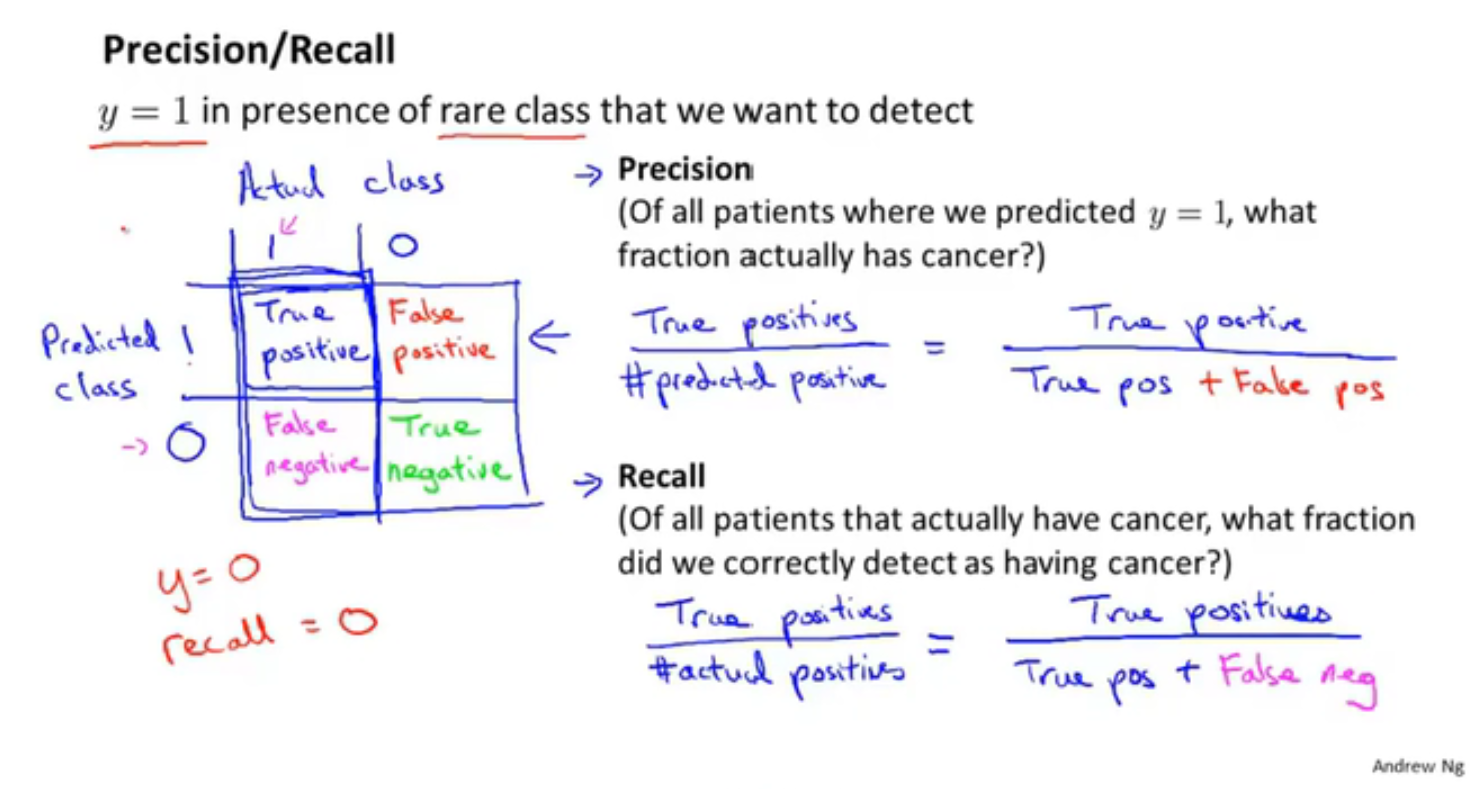 Precision/Recall
y = 1 in presence of rare class that we want to detect
Actual class
1 0
Predicted 1
class
True
positive
False
positive
0
False
negative
True
negative
y = 0
recall = 0
→ Precision
(Of all patients where we predicted y = 1, what
fraction actually has cancer?)
True positives
#predicted positive
=
True positive
True pos + False pos
→ Recall
(Of all patients that actually have cancer, what fraction
did we correctly detect as having cancer?)
True positives
#actual positives
=
True positives
True pos + False neg
Andrew Ng